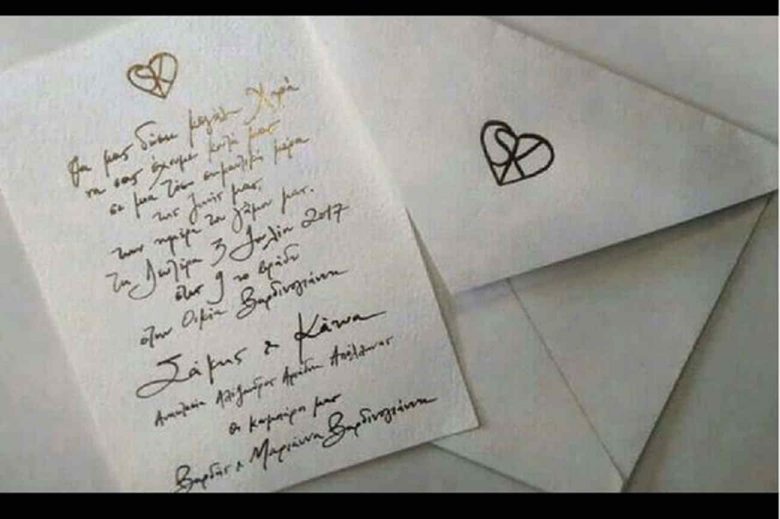 SK
Θα μας δώσει μεγάλη Χαρά
να σας έχουμε κοντά μας
σε μια τόσο σημαντική μέρα
της ζωής μας,
την ημέρα του γάμου μας.
Τη Δευτέρα 3 Ιουλίου 2017
στις 9 το βράδυ
στην Οικία Βαρδινογιάννη
Σάκης & Κάτια
Αναστασία Αλέξανδρος Αριάδνη Απόλλωνας
οι κουμπάροι μας
Βαρδής & Μαριάννα Βαρδινογιάννη
SK